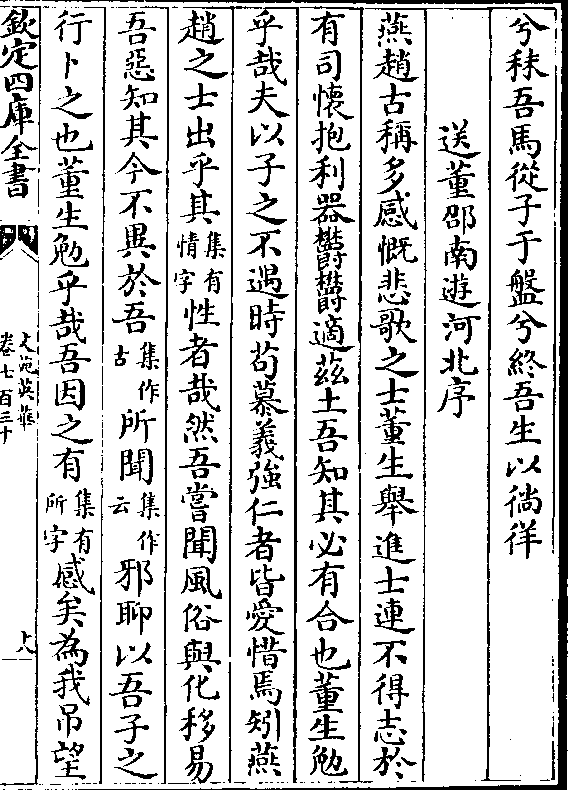 兮秣吾馬從子于盤兮終吾生以徜徉
送董邵南遊河北序
燕趙古稱多感慨悲歌之士董生舉進士連不得志於
有司懷抱利器鬱鬱適茲土吾知其必有合也董生勉
乎哉夫以子之不遇時茍慕義強仁者皆愛惜焉矧燕
趙之士出乎其集有情字性者哉然吾嘗聞風俗與化移易
吾惡知其今不異於吾集作古所聞集作云邪聊以吾子之
行卜之也董生勉乎哉吾因之有集有所字感矣為我弔望
欽定四庫全書
文苑英華
卷七百三十
十八